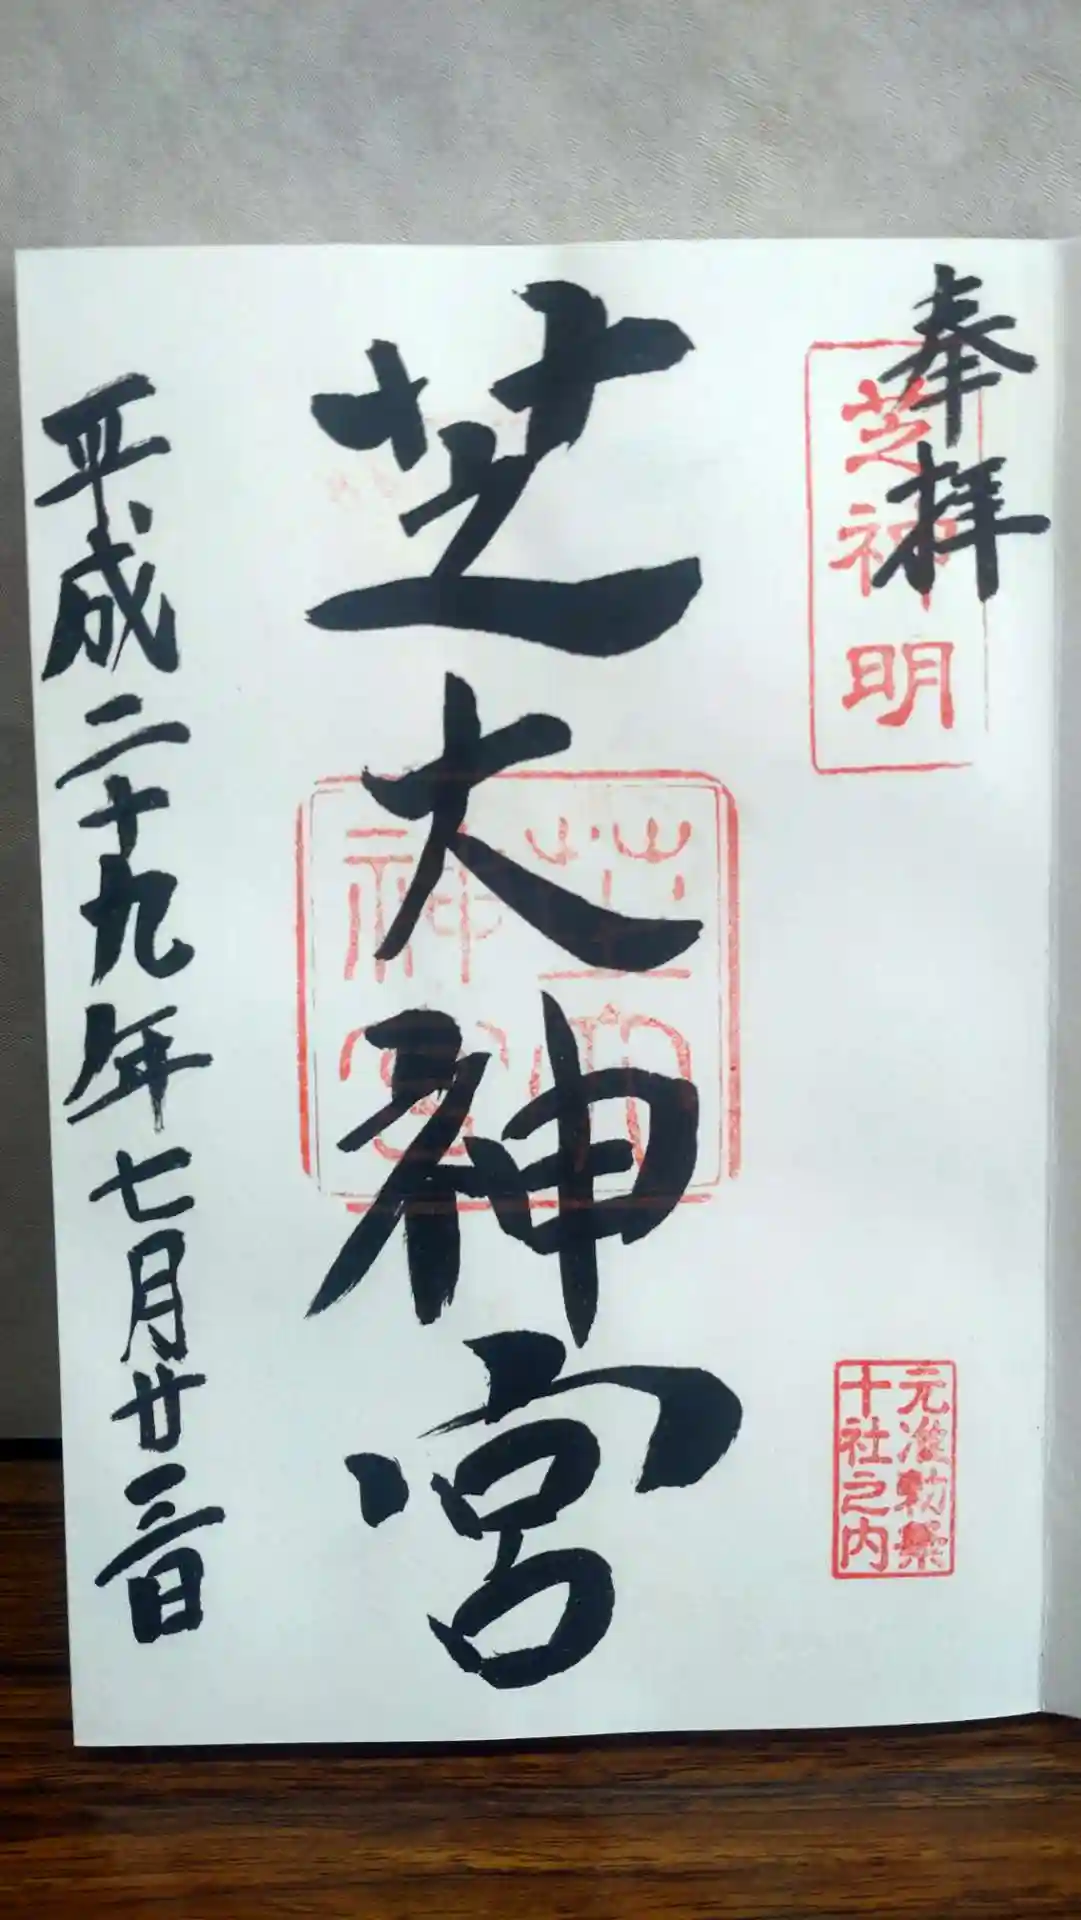 奉拝
芝神明
元准勅祭
十社之内
芝大神宮
芝大
神宮
平成二十九年七月廿三日